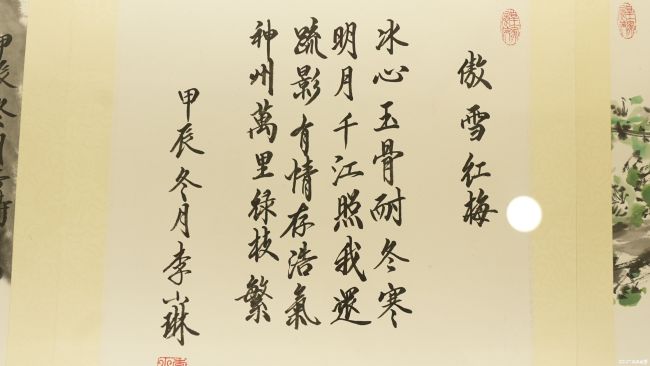 傲雪红梅
冰心玉骨耐冬寒
明月千江照我还
疏影有情存浩氣
神州萬里绿枝繁
甲辰冬月李小琳